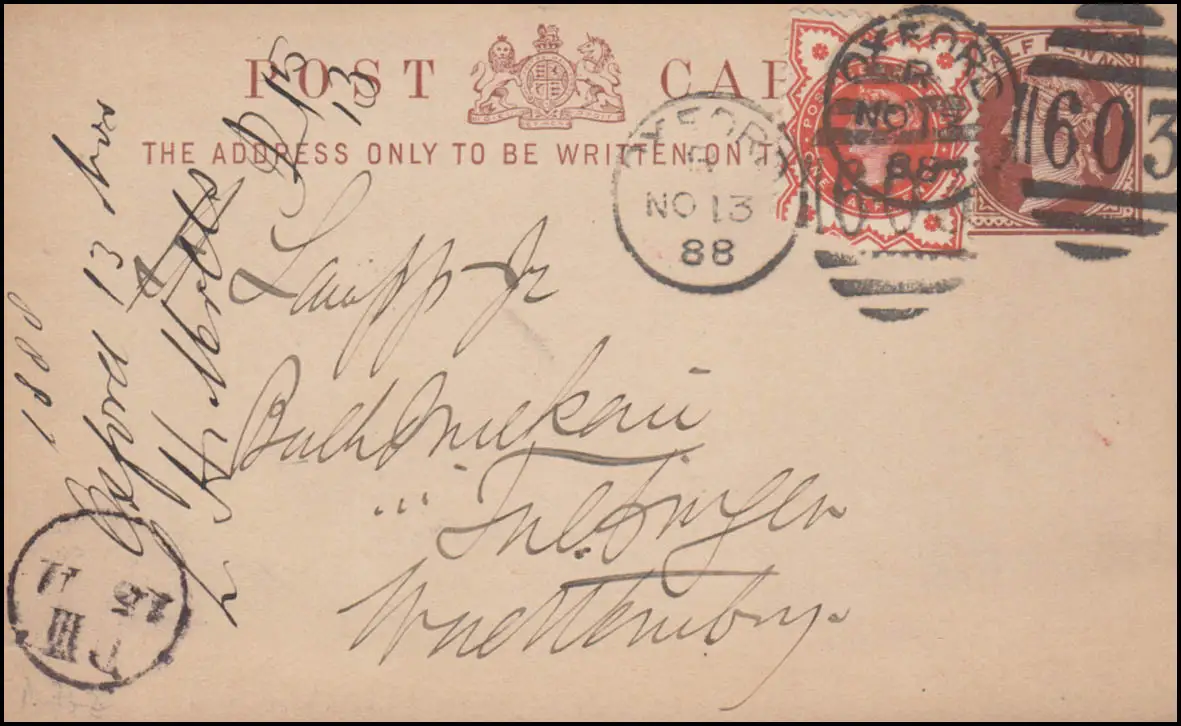 POST CAR
THE ADDRESS ONLY TO BE WRITTEN ON T
HALF PENNY
OXFORD
R
NO 13
88
OXFORD
R
NO 13
88
603
603
Laupp Jr
Buchdruckerei
in Tübingen
Wuerttemberg.
Oxford 13 Nov
1888
L H
15
13
15 11
T III